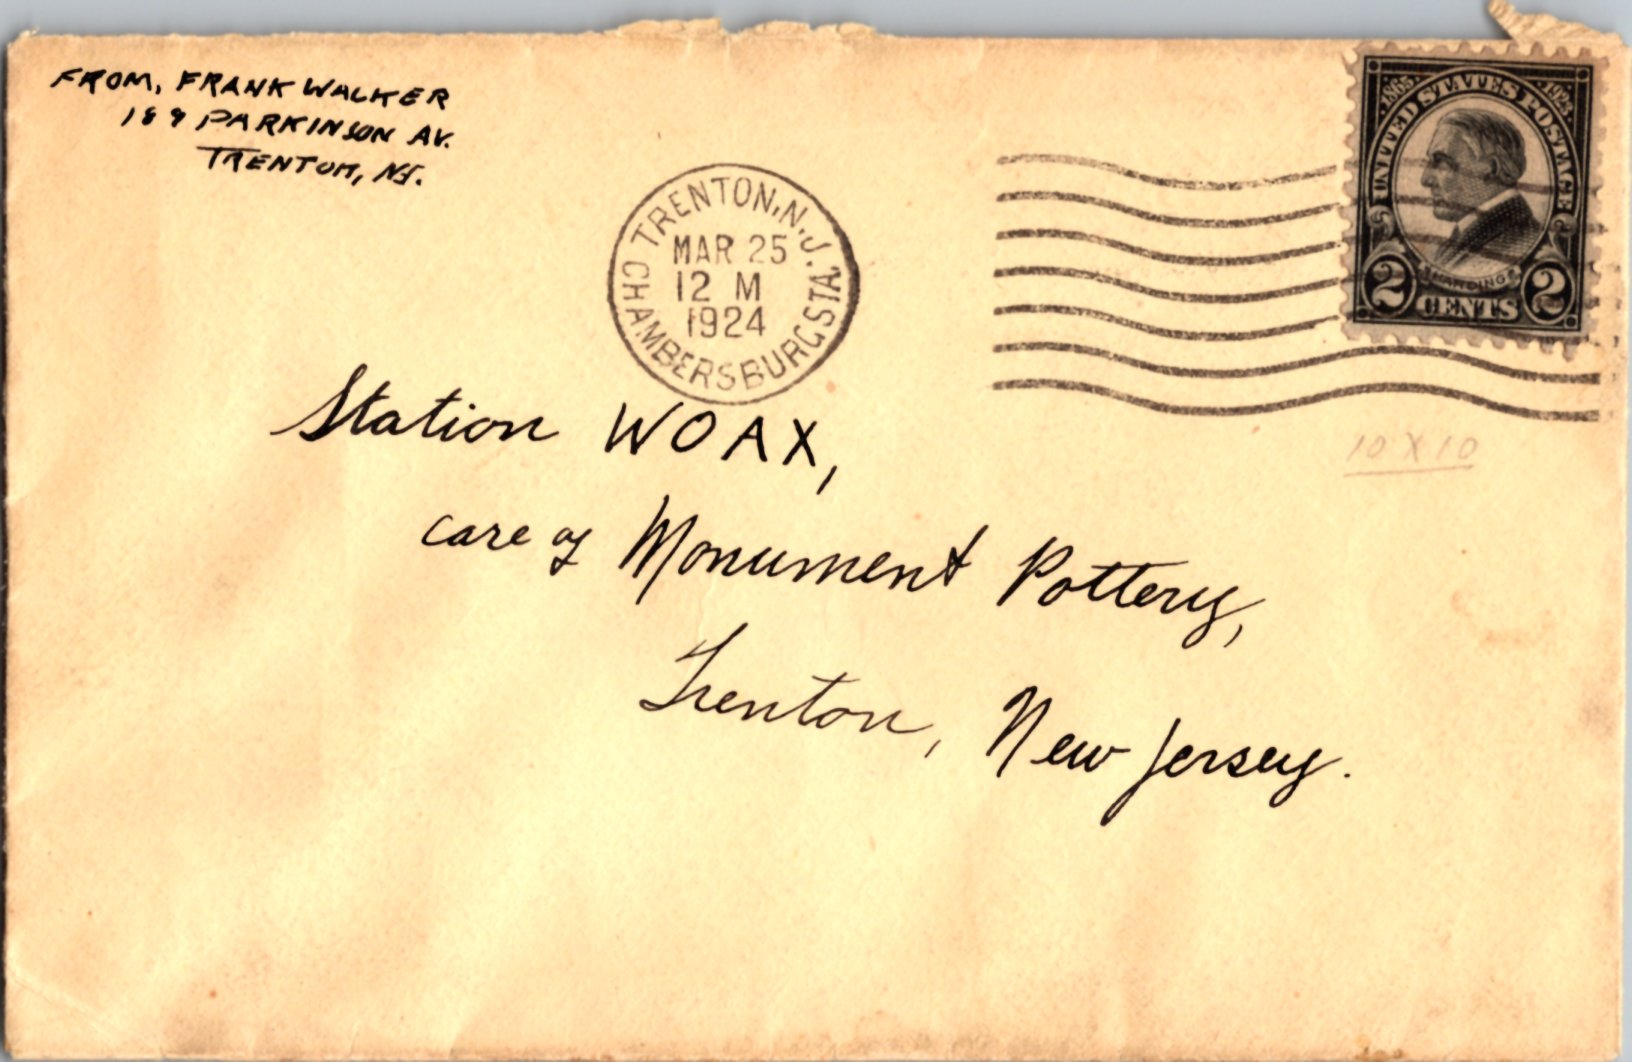 FROM, FRANK WALKER
189 PARKINSON AV.
TRENTON, NJ.
TRENTON, N.J.
MAR 25
12 M
1924
CHAMBERSBURG STA.
1865 1923
UNITED STATES POSTAGE
HARDING
2 CENTS 2
10 X 10
Station WOAX,
care of Monument Pottery,
Trenton, New Jersey.